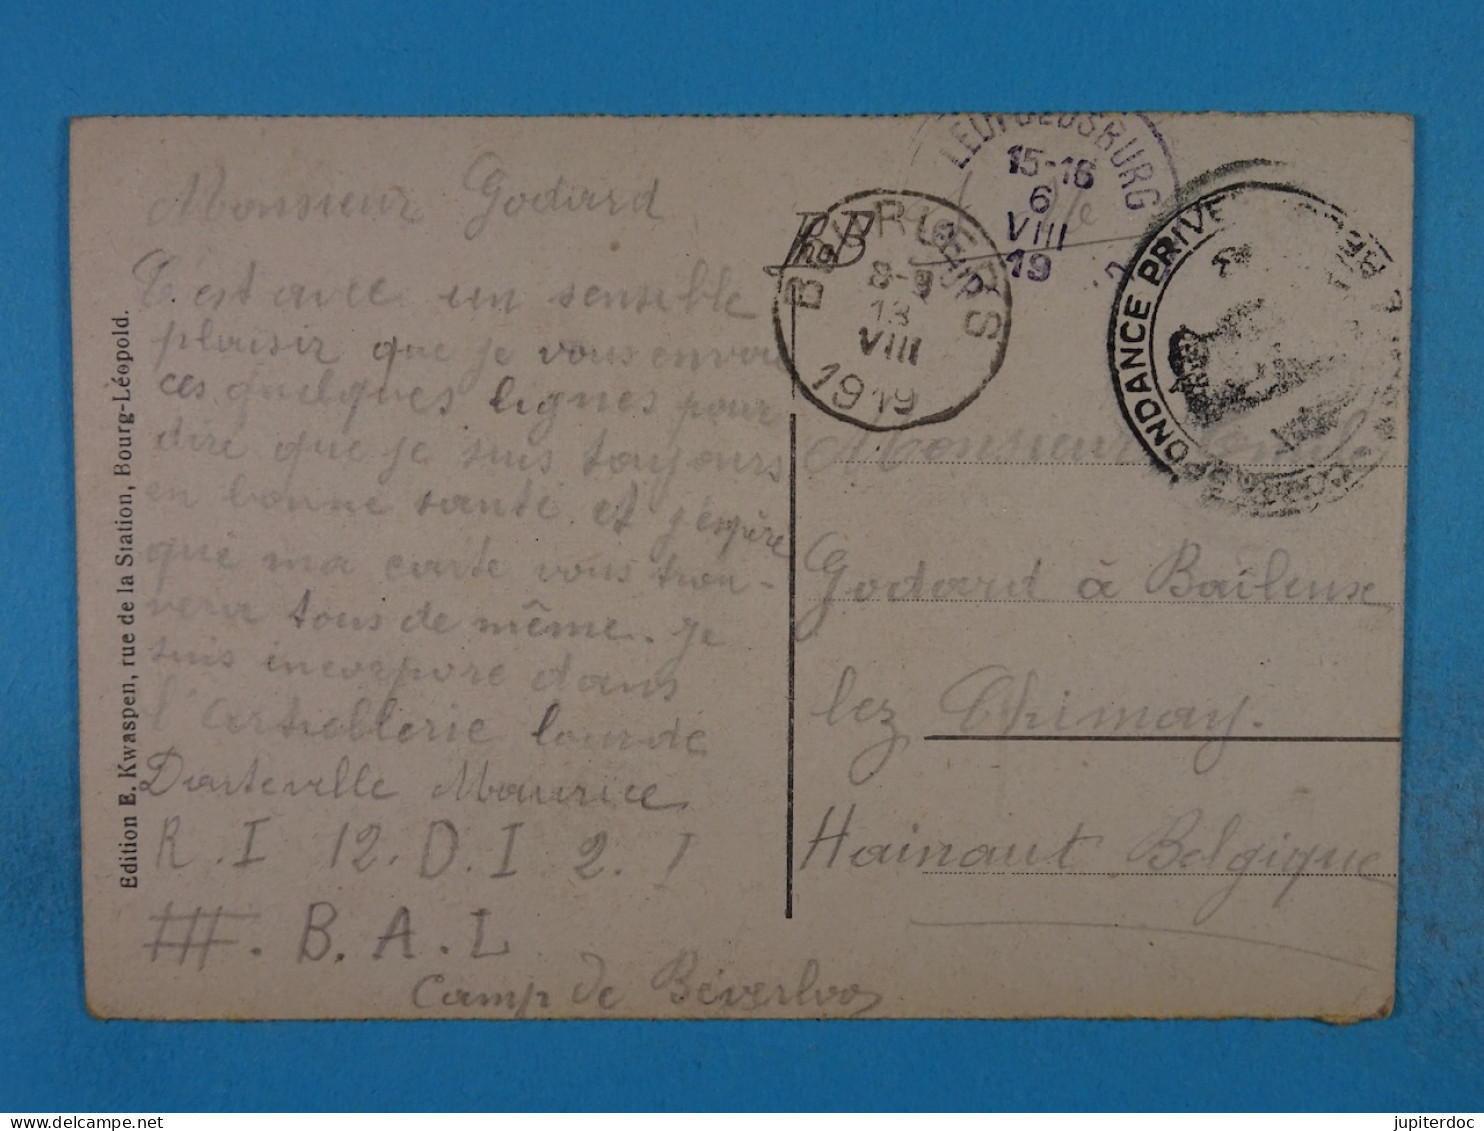 Monsieur Godard
C'est avec un sensible
plaisir que je vous envoi
ces quelques lignes pour
dire que je suis toujours
en bonne santé et j'espère
que ma carte vous trou-
verer tous de même. Je
suis incorpore dans
l'Artiellerie lourde
Darteville Maurice
R.I 12. D.I 2. I
III. B.A.L
Camp de Béverloo
Edition E. Kwaspen, rue de la Station, Bourg-Léopold.
LEOPOLDSBURG
15-16
6
VIII
19
8-9
13
VIII
1919
CORRESPONDANCE PRIVEE
Monsieur
Godard à Baileux
lez Chimay.
Hainaut Belgique
jupiterdoc
www.delcampe.net